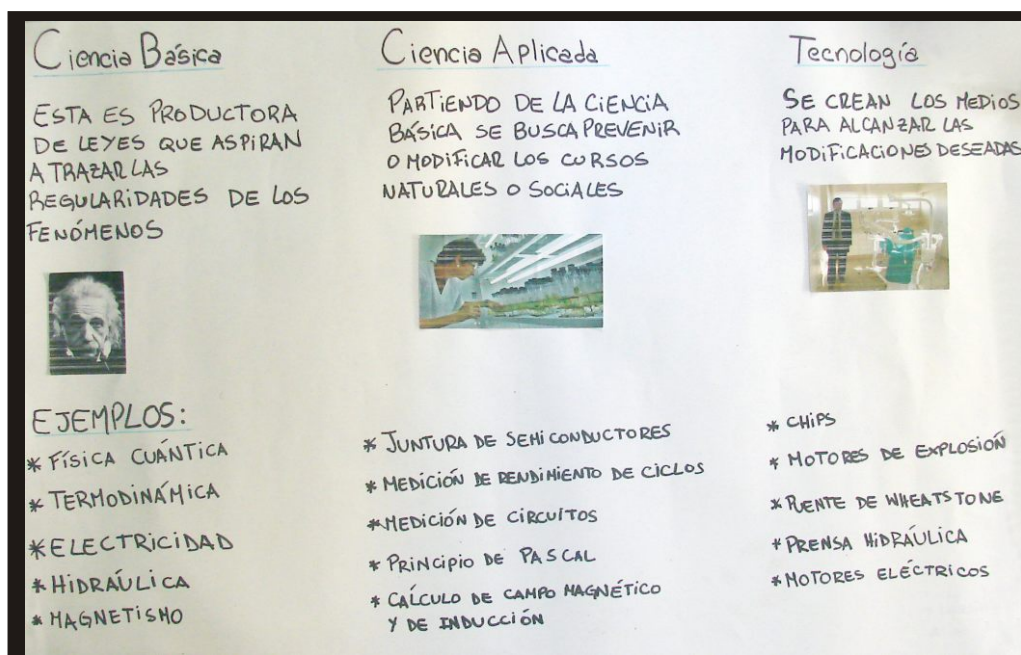 Ciencia Básica
ESTA ES PRODUCTORA
DE LEYES QUE ASPIRAN
A TRAZAR LAS
REGULARIDADES DE LOS
FENÓMENOS
EJEMPLOS:
* FÍSICA CUÁNTICA
* TERMODINÁMICA
* ELECTRICIDAD
* HIDRAÚLICA
* MAGNETISMO
Ciencia Aplicada
PARTIENDO DE LA CIENCIA
BÁSICA SE BUSCA PREVENIR
O MODIFICAR LOS CURSOS
NATURALES O SOCIALES
* JUNTURA DE SEMICONDUCTORES
* MEDICIÓN DE RENDIMIENTO DE CICLOS
* MEDICIÓN DE CIRCUÍTOS
* PRINCIPIO DE PASCAL
* CALCULO DE CAMPO MAGNÉTICO
Y DE INDUCCIÓN
Tecnología
SE CREAN LOS MEDIOS
PARA ALCANZAR LAS
MODIFICACIONES DESEADAS
* CHIPS
* MOTORES DE EXPLOSIÓN
* PUENTE DE WHEATSTONE
* PRENSA HIDRAÚLICA
* MOTORES ELÉCTRICOS